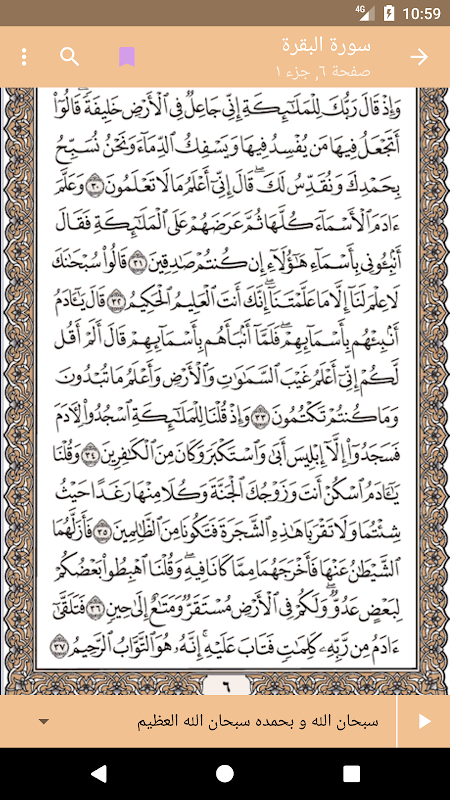 4G 10:59
سورة البقرة
صفحة ٦, جزء ١
وَإِذْ قَالَ رَبُّكَ لِلْمَلَٰٓئِكَةِ إِنِّى جَاعِلٌ فِى ٱلْأَرْضِ خَلِيفَةً ۖ قَالُوٓا۟
أَتَجْعَلُ فِيهَا مَن يُفْسِدُ فِيهَا وَيَسْفِكُ ٱلدِّمَآءَ وَنَحْنُ نُسَبِّحُ
بِحَمْدِكَ وَنُقَدِّسُ لَكَ ۖ قَالَ إِنِّىٓ أَعْلَمُ مَا لَا تَعْلَمُونَ ٣٠ وَعَلَّمَ
ءَادَمَ ٱلْأَسْمَآءَ كُلَّهَا ثُمَّ عَرَضَهُمْ عَلَى ٱلْمَلَٰٓئِكَةِ فَقَالَ
أَنۢبِـُٔونِى بِأَسْمَآءِ هَٰٓؤُلَآءِ إِن كُنتُمْ صَٰدِقِينَ ٣١ قَالُوا۟ سُبْحَٰنَكَ
لَا عِلْمَ لَنَآ إِلَّا مَا عَلَّمْتَنَآ ۖ إِنَّكَ أَنتَ ٱلْعَلِيمُ ٱلْحَكِيمُ ٣٢ قَالَ يَٰٓـَٔادَمُ
أَنۢبِئْهُم بِأَسْمَآئِهِمْ ۖ فَلَمَّآ أَنۢبَأَهُم بِأَسْمَآئِهِمْ قَالَ أَلَمْ أَقُل
لَّكُمْ إِنِّىٓ أَعْلَمُ غَيْبَ ٱلسَّمَٰوَٰتِ وَٱلْأَرْضِ وَأَعْلَمُ مَا تُبْدُونَ
وَمَا كُنتُمْ تَكْتُمُونَ ٣٣ وَإِذْ قُلْنَا لِلْمَلَٰٓئِكَةِ ٱسْجُدُوا۟ لِـَٔادَمَ
فَسَجَدُوٓا۟ إِلَّآ إِبْلِيسَ أَبَىٰ وَٱسْتَكْبَرَ وَكَانَ مِنَ ٱلْكَٰفِرِينَ ٣٤ وَقُلْنَا
يَٰٓـَٔادَمُ ٱسْكُنْ أَنتَ وَزَوْجُكَ ٱلْجَنَّةَ وَكُلَا مِنْهَا رَغَدًا حَيْثُ
شِئْتُمَا وَلَا تَقْرَبَا هَٰذِهِ ٱلشَّجَرَةَ فَتَكُونَا مِنَ ٱلظَّٰلِمِينَ ٣٥ فَأَزَلَّهُمَا
ٱلشَّيْطَٰنُ عَنْهَا فَأَخْرَجَهُمَا مِمَّا كَانَا فِيهِ ۖ وَقُلْنَا ٱهْبِطُوا۟ بَعْضُكُمْ
لِبَعْضٍ عَدُوٌّ ۖ وَلَكُمْ فِى ٱلْأَرْضِ مُسْتَقَرٌّ وَمَتَٰعٌ إِلَىٰ حِينٍ ٣٦ فَتَلَقَّىٰٓ
ءَادَمُ مِن رَّبِّهِۦ كَلِمَٰتٍ فَتَابَ عَلَيْهِ ۚ إِنَّهُۥ هُوَ ٱلتَّوَّابُ ٱلرَّحِيمُ ٣٧
٦
سبحان الله و بحمده سبحان الله العظيم